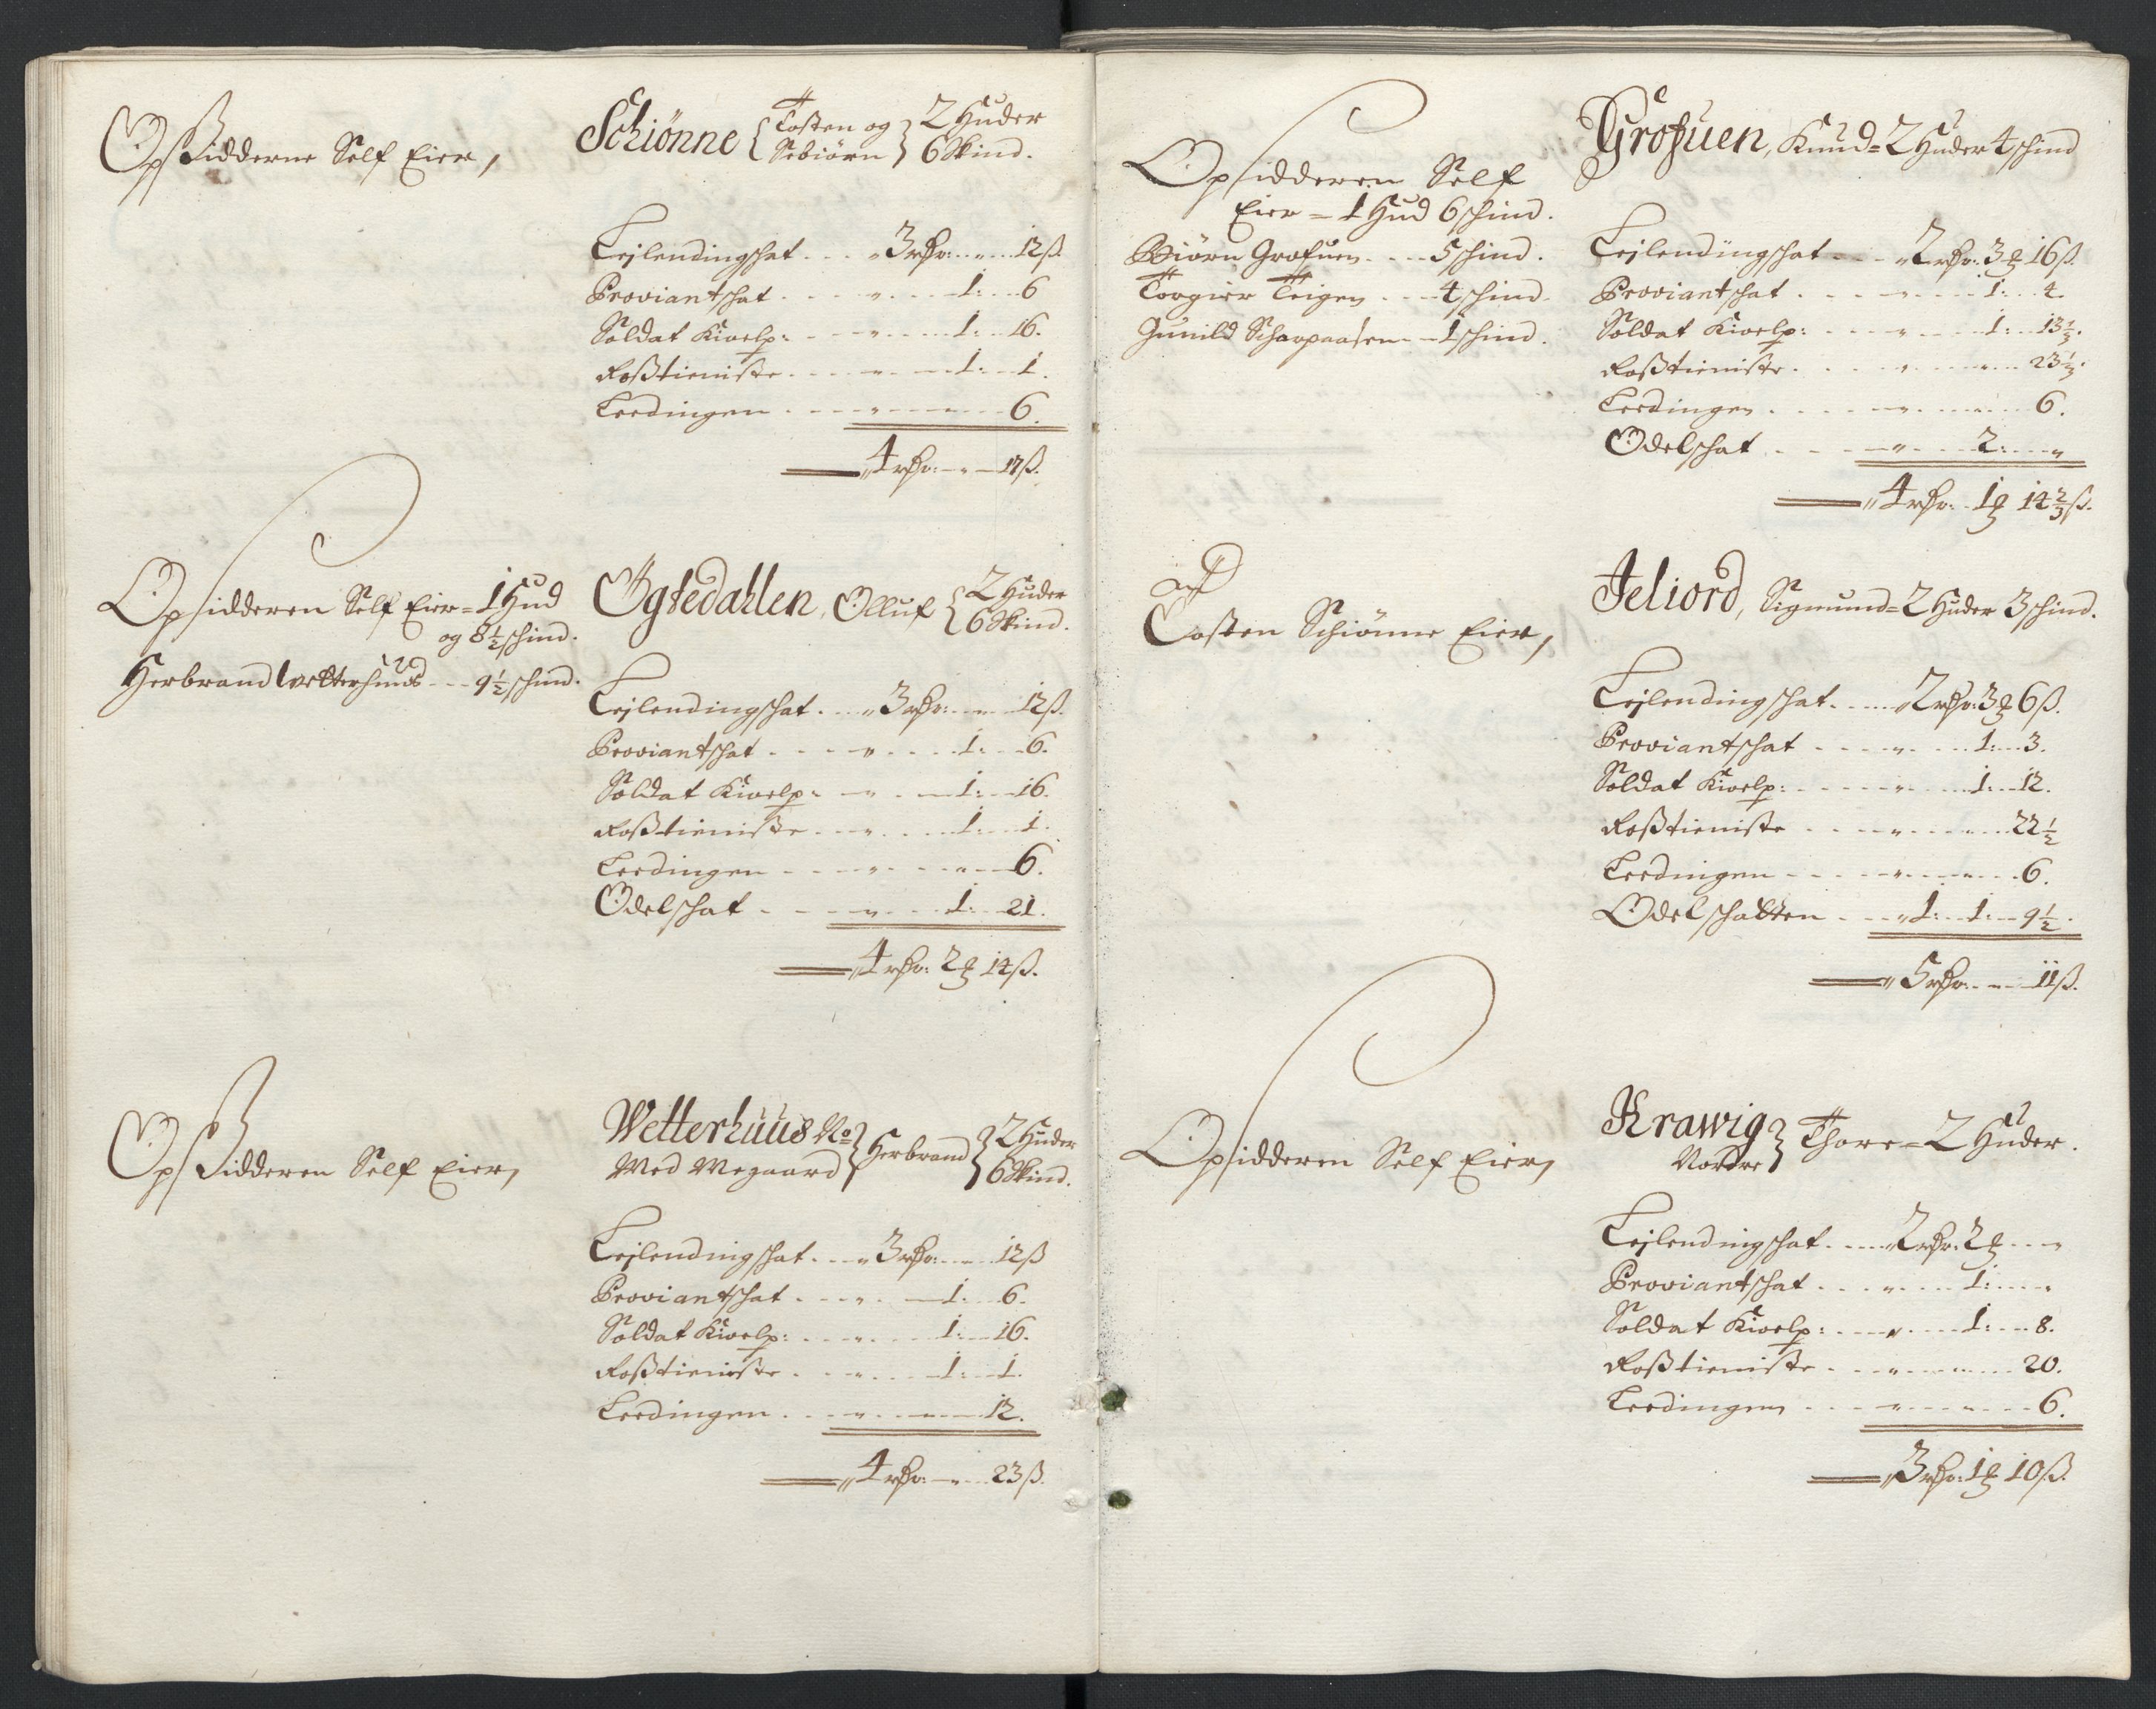 Opsidderne Self Eier,
Schiønne { Tosten og Sebiørn } 2 Huder 6 Skind.
Leilendingschat - - - " 3 rdr: - " - 12 ß.
Proviantschat - - - " - - 1: - 6
Soldat Kioelp: - - " - - 1: - 16.
Roßtieniste - - - " - - 1: - 1.
Leedingen - - - " - - " - - 6.
4 rdr: - " - 17 ß.
Opsidderen Self Eier = 1 Hud
og 8½ schind.
Herbrand Wetterhuus - - 9½ schind.
Ögstedahlen, Olluf { 2 Huder 6 Skind.
Leilendingschat - - - " 3 rdr: - " - 12 ß.
Proviantschat - - - - " - - 1: - 6.
Soldat Kioelp: - - " - - 1: - 16.
Roßtieniste - - - " - - 1: - 1.
Leedingen - - - " - - " - - 6.
Odelschat - - - " - - 1: - 21.
4 rdr: 2 ℔ 14 ß.
Opsidderen Self Eier,
Wetterhuus No
Med Megaard } Herbrand } 2 Huder 6 Skind.
Leilendingschat - - - " 3 rdr: - " - 12 ß
Proviantschat - - - " - - 1: - 6.
Soldat Kioelp: - - " - - 1: - 16.
Roßtieniste - - - " - - 1: - 1.
Leedingen - - - " - - " - - 12.
4 rdr: - " - 23 ß.
Opsidderen Self
Eier = 1 Hud 6 schind.
Biörn Grofuen - - - 5 schind.
Torgier Teigen - - - 4 schind.
Gunild Scharpaasen - - 1 schind.
Grofuen, Knud = 2 Huder 4 schind
Leilendingschat - - - " 2 rdr: 3 ℔ 16 ß.
Proviantschat - - - " - - 1: - 4.
Soldat Kioelp: - - - " - - 1: - 13⅓.
Roßtieniste - - - " - - " - - 23⅓.
Leedingen - - - " - - " - - 6.
Odelschat - - - " - - 2: - "
4 rdr: 1 ℔ 14⅔ ß.
Tosten Schiönne Eier,
Jeliord, Sigmund = 2 Huder 3 schind.
Leilendingschat - - - " 2 rdr: 3 ℔ 6 ß.
Proviantschat - - - " - - 1: - 3.
Soldat Kioelp: - - - " - - 1: - 12.
Roßtieniste - - - " - - " - - 22½
Leedingen - - - " - - " - - 6.
Odelschatten - - - " 1: - 1: - 9½.
5 rdr: - " - 11 ß.
Opsidderen Self Eier,
Krawig Nordre } Thore = 2 Huder.
Leilendingschat - - - " 2 rdr: 2 ℔ - - "
Proviantschat - - - " - - 1: - "
Soldat Kioelp: - - - " - - 1: - 8.
Roßtieniste - - - " - - " - - 20.
Leedingen - - - " - - " - - 6.
3 rdr: 1 ℔ 10 ß.